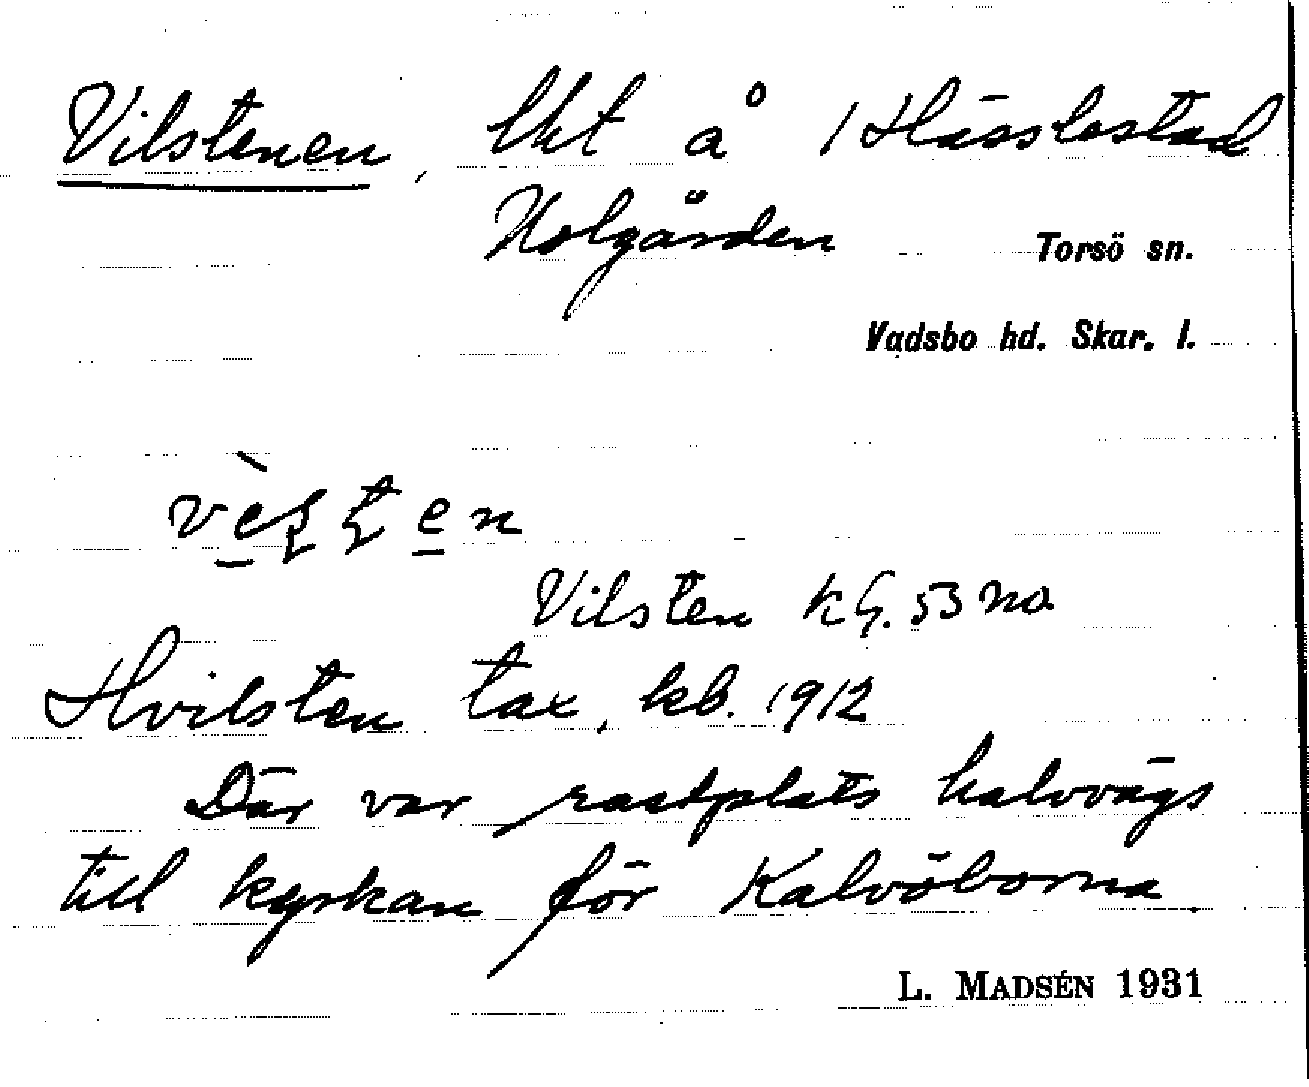 Vilstenen, lkt å 1 Hässlestad
Holgården Torsö sn.
Vadsbo hd. Skar. l.
Vilsten kG. 53 no
Hvilsten tax. kb. 1912
Där var rastplats halvvägs
till kyrkan för Kalvöborna.
L. MADSÉN 1931